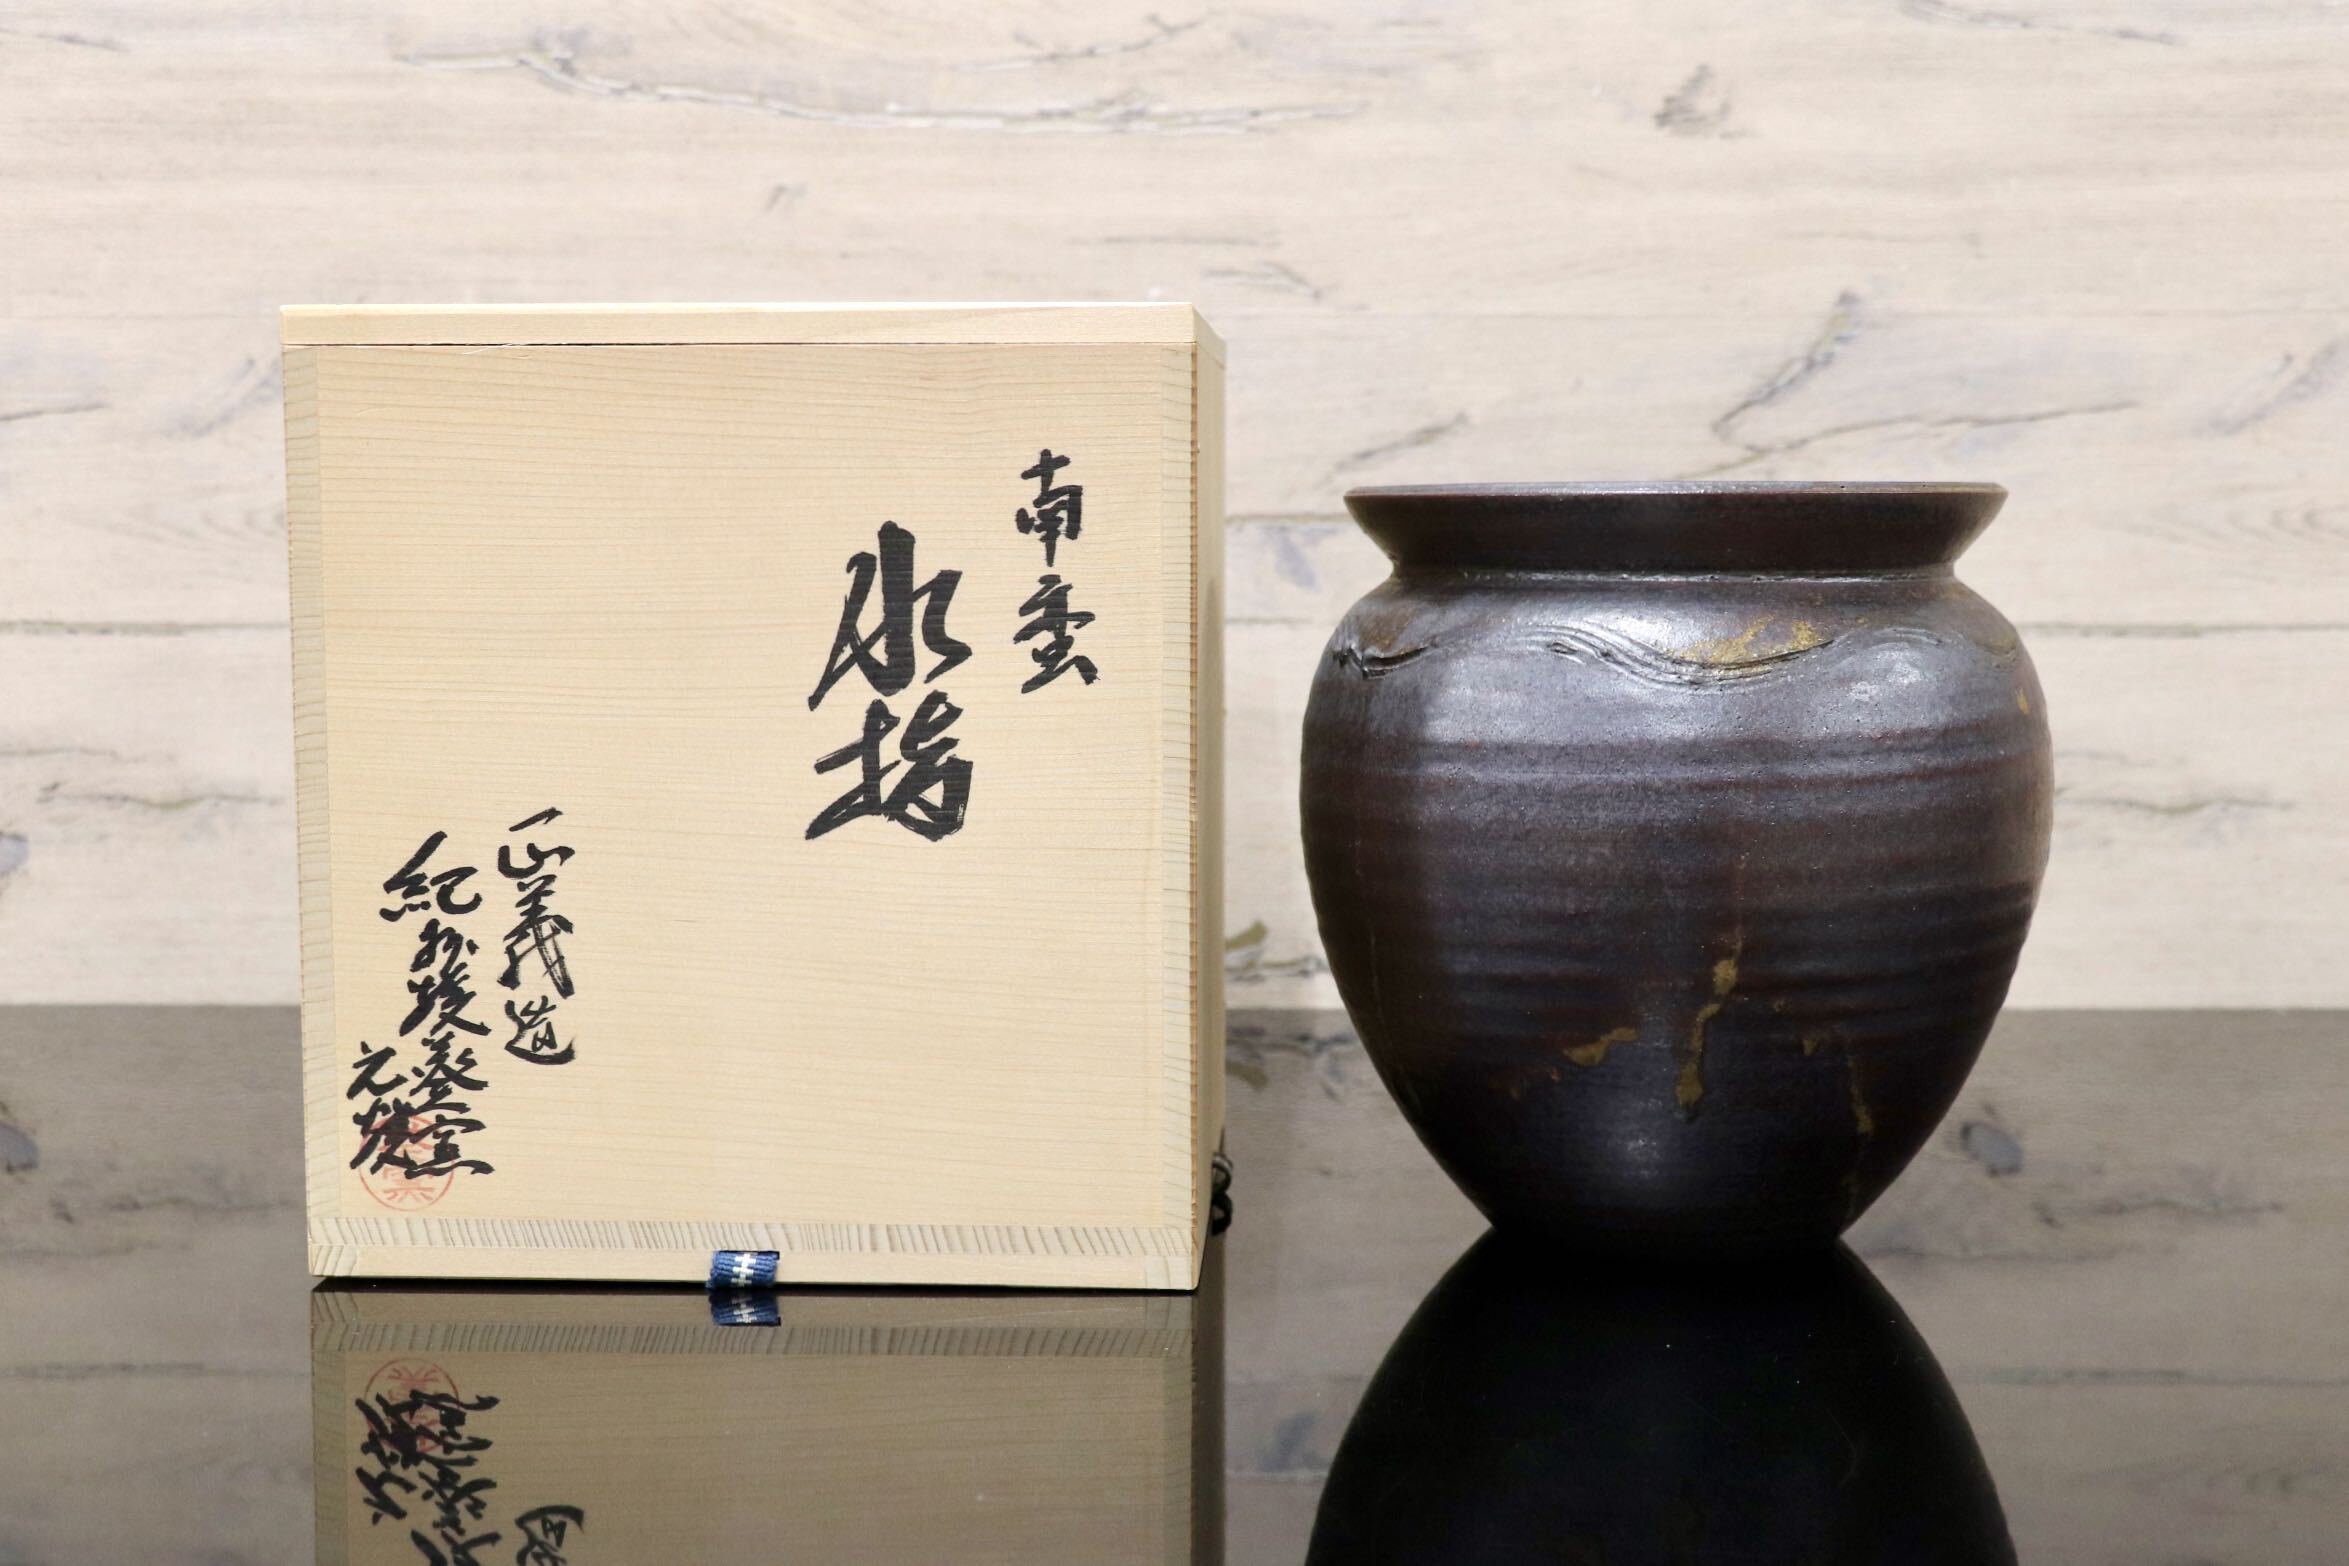 南蛮
水指
正義造
紀州焼葵窯
元焼